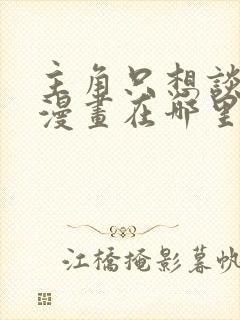 主角只想談
漫畫在哪里
江橋掩影暮帆